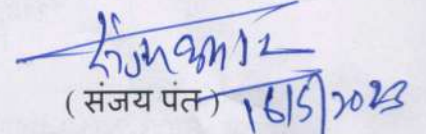 ( संजय पंत ) 16/5/2023